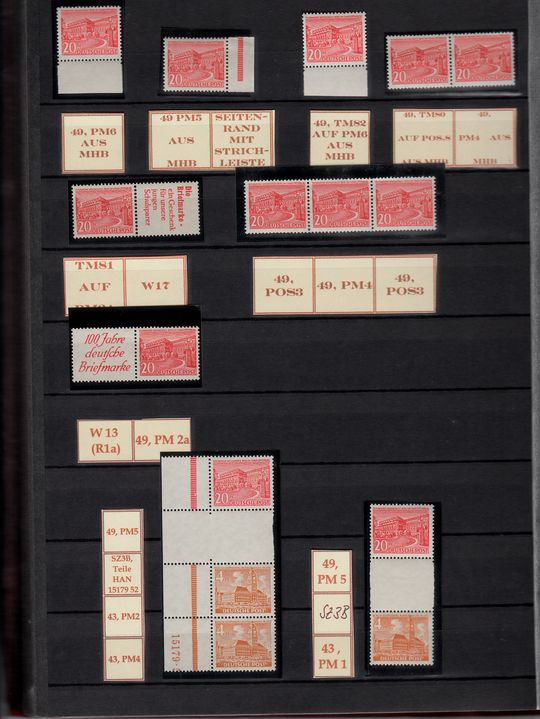 20
DEUTSCHE POST
20
DEUTSCHE POST
20
DEUTSCHE POST
20
DEUTSCHE POST
20
DEUTSCHE POST
49, PM6
AUS
MHB
49 PM5
AUS
MHB
SEITEN-
RAND
MIT
STRICH-
LEISTE
49, TM82
AUF PM6
AUS
MHB
49, TM80
AUF POS.8
AUS MHB
49,
PM4 AUS
MHB
20
DEUTSCHE POST
Die
Briefmarke -
ein Geschenk
für unsere
jungen
Schulsparer
20
DEUTSCHE POST
20
DEUTSCHE POST
20
DEUTSCHE POST
TM81
AUF
W17
49,
POS3
49, PM4
49,
POS3
100 Jahre
deutsche
Briefmarke
20
DEUTSCHE POST
W 13
(R1a)
49, PM 2a
20
DEUTSCHE POST
4
DEUTSCHE POST
4
DEUTSCHE POST
15179
49, PM5
SZ3B,
Teile
HAN
15179 52
43, PM2
43, PM4
49,
PM 5
SZ3B
43,
PM 1
20
DEUTSCHE POST
4
DEUTSCHE POST